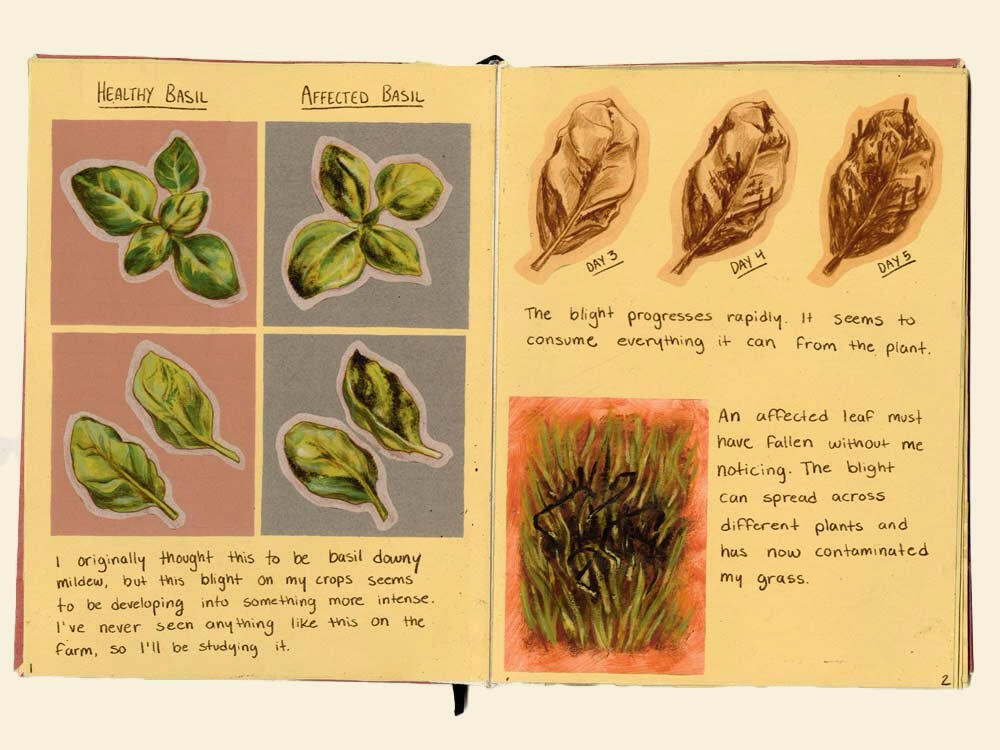 HEALTHY BASIL
AFFECTED BASIL
I originally thought this to be basil downy
mildew, but this blight on my crops seems
to be developing into something more intense.
I've never seen anything like this on the
farm, so I'll be studying it.
1
DAY 3
DAY 4
DAY 5
The blight progresses rapidly. It seems to
consume everything it can from the plant.
An affected leaf must
have fallen without me
noticing. The blight
can spread across
different plants and
has now contaminated
my grass.
2